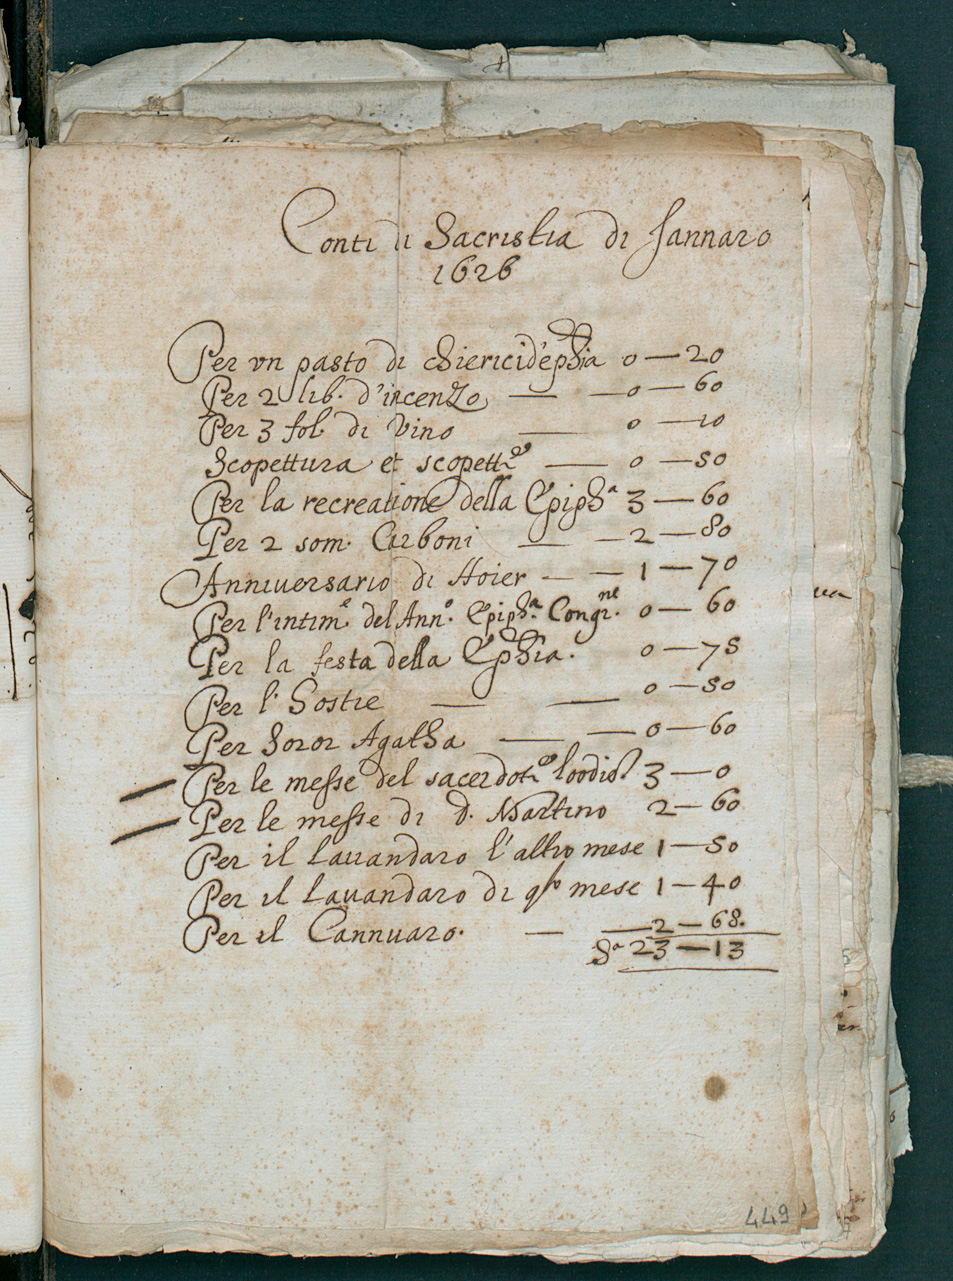 Conti di Sacristia di Jannaro
1626
Per vn pasto di chierici d'ephia 0—20
Per 2 lib. d'incenzo — — 0—60
Per 3 fol. di Vino — 0—10
Scopettura et scopett. — 0—50
Per la recreatione della Epiph.ª 3—60
Per 2 som. Carboni — — 2—80
Anniuersario di Hoier — — 1—70
Per l'intim.e del Ann.o Epiph.ª Congr.ne 0—60
Per la festa della Ephia. 0—75
Per l' Hostie — — 0—50
Per Soror Agatha — — 0—60
Per le messe del sacerdot. 3—0
Per le messe di D. Martino 2—60
Per il Lauandaro l'altro mese 1—50
Per il Lauandaro di qto mese 1—40
Per il Cannuaro. — — 2—68.
Sª 23—13
449